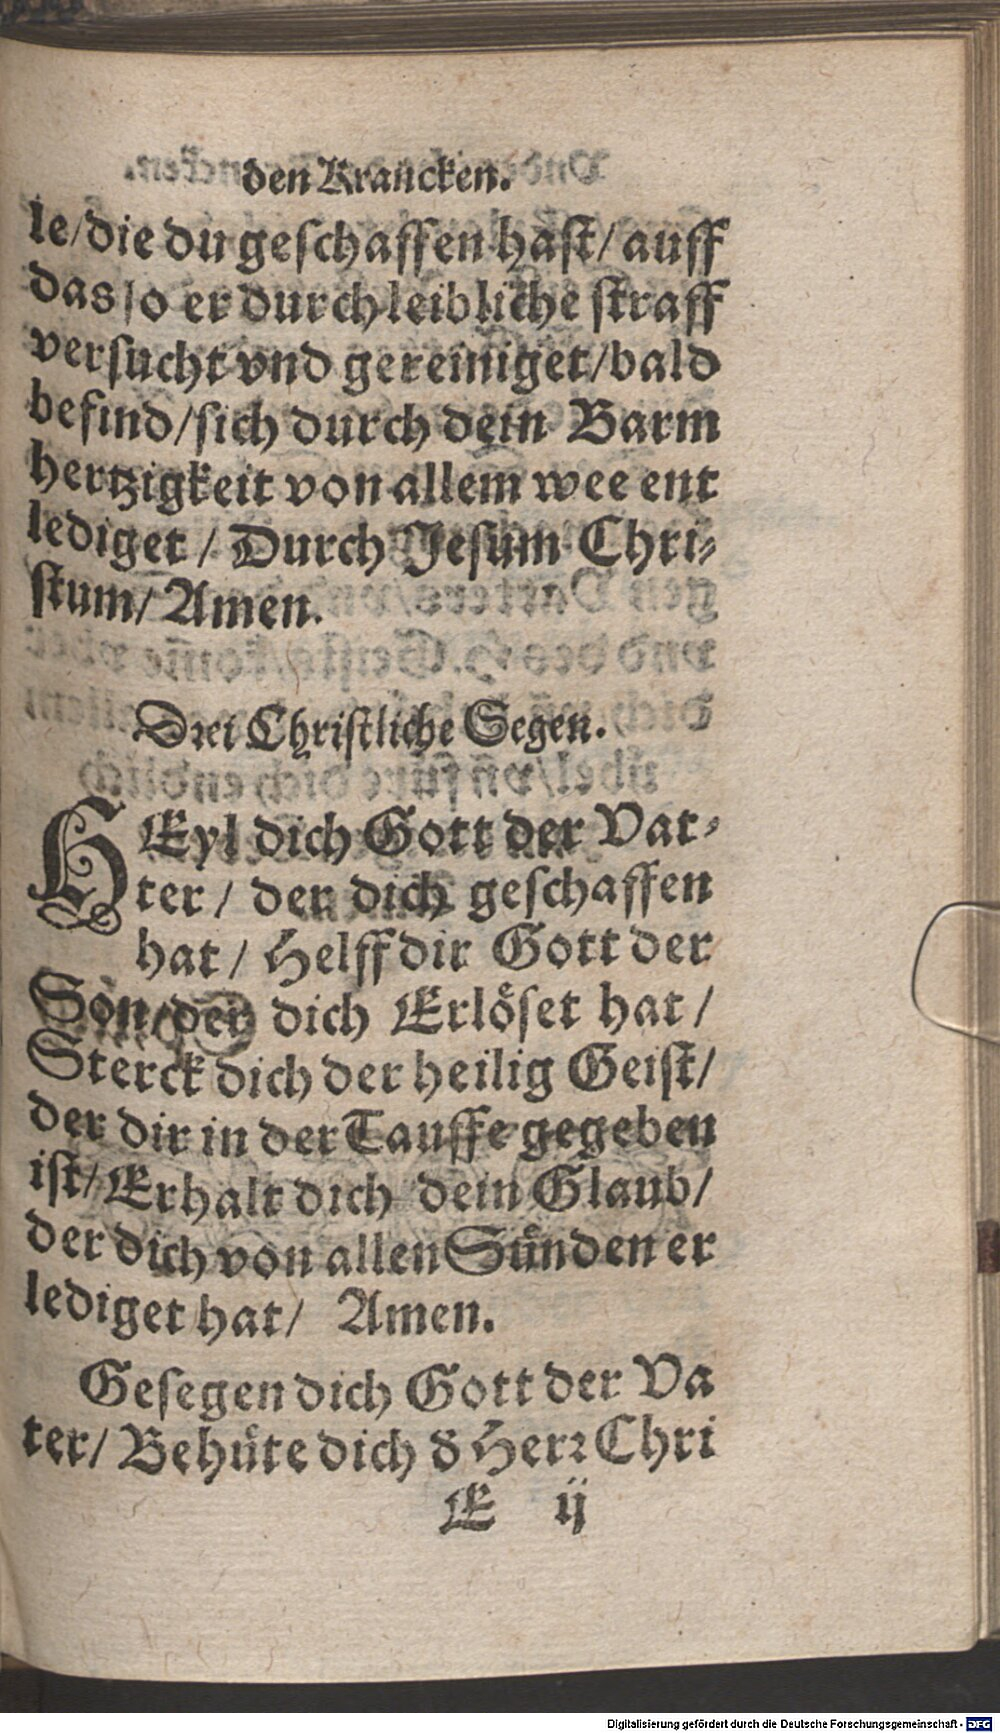 den Krancken.
le/die du geſchaffen haſt/ auff
das ſo er durch leibliche ſtraff
verſucht vnd gereiniget/bald
befind/ſich durch dein Barm
hertzigkeit von allem wee ent
lediget / Durch Jeſum Chri⸗
ſtum/ Amen.
Drei Chriſtliche Segen.
HEyl dich Gott der Vat⸗
ter / der dich geſchaffen
hat / Helff dir Gott der
Son/der dich Erlöſet hat /
Sterck dich der heilig Geiſt/
der dir in der Tauffe gegeben
iſt/ Erhalt dich dein Glaub/
der dich von allen Sünden er
lediget hat/ Amen.
Geſegen dich Gott der Va
ter/ Behüte dich d̕ Herꝛ Chri
E ij
Digitalisierung gefördert durch die Deutsche Forschungsgemeinschaft - DFG